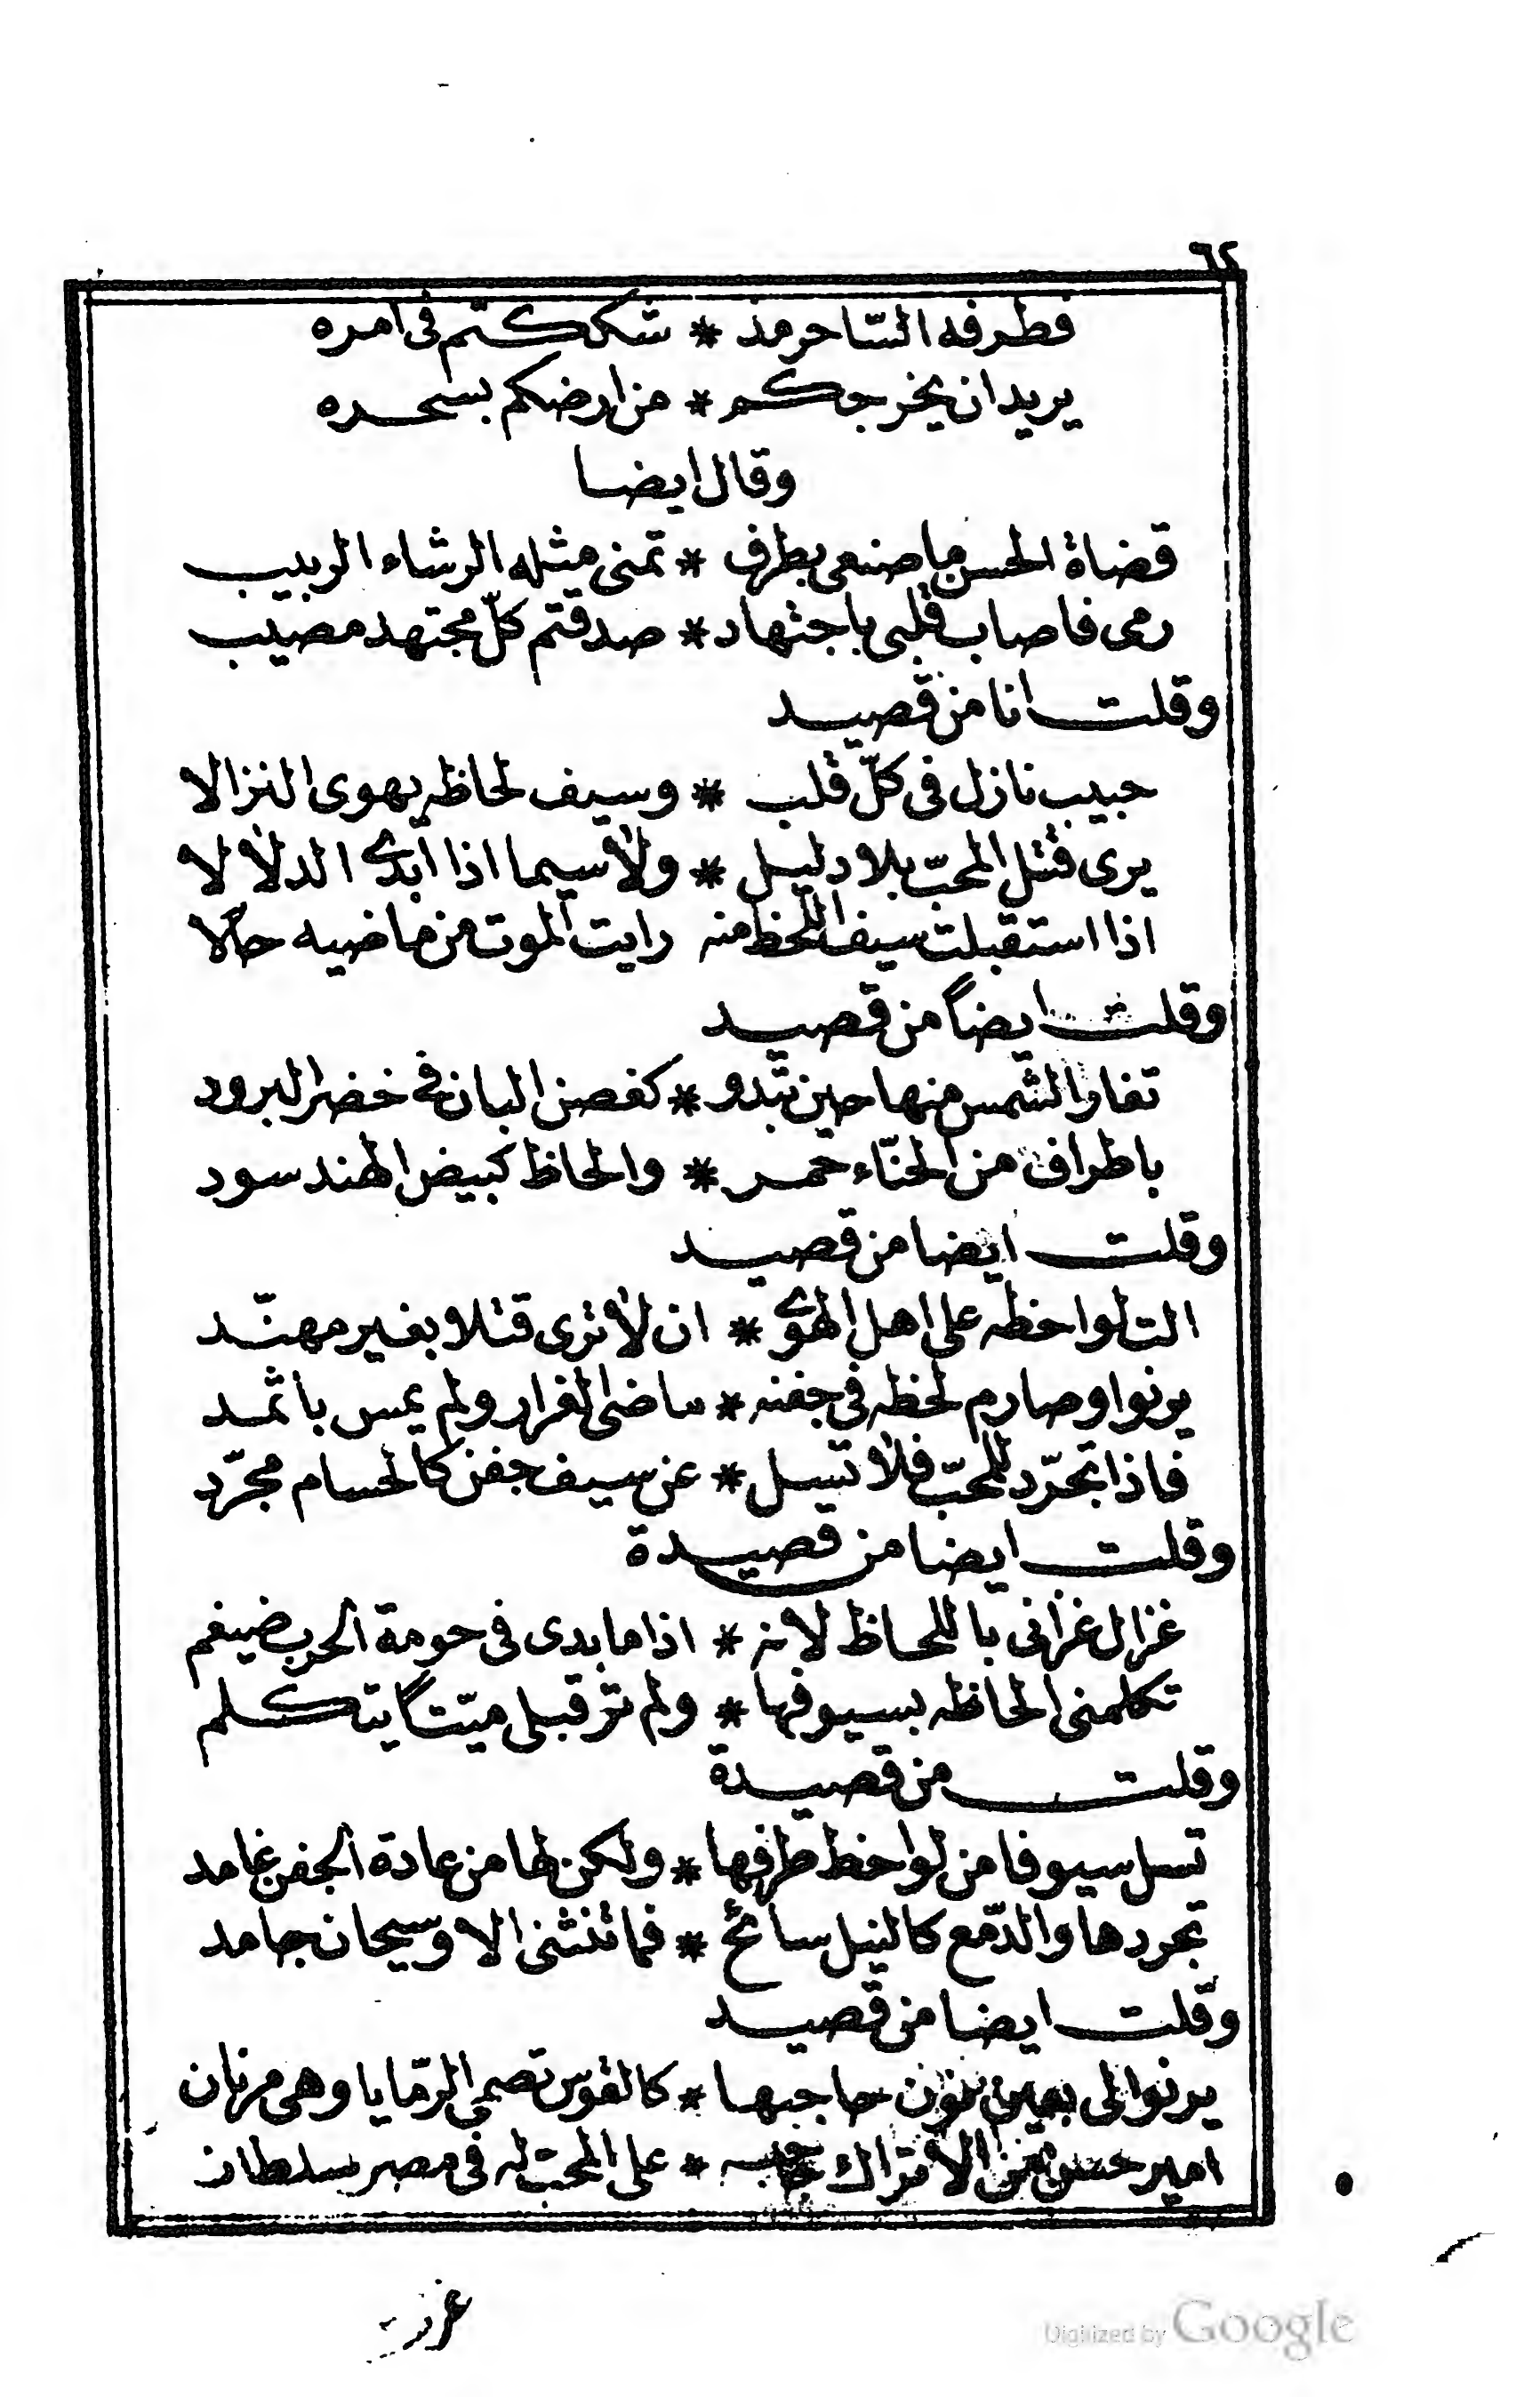 ٦٢
فطرفه السّاحر مذ * شككتم فى امره
يريد ان يخرجكم * من ارضكم بسحره
وقال ايضا
قضاة الحسن ما صنعى بطرف * تمنى مثله الرشاء الربيب
رمى فاصاب قلبى باجتهاد * صدقتم كلّ مجتهد مصيب
وقلت انا من قصيد
حبيب نازل فى كلّ قلب * وسيف لحاظه يهوى النزالا
يرى قتل المحبّ بلا دليل * ولا سيما اذا ابدى الدلالا
اذا استقبلت سيف اللحظ منه رايت الموت من ماضيه حالا
وقلت ايضاً من قصيد
تغار الشمس منها حين تبدو * كغصن البان فى خضر البرود
باطراف من الحنّاء حمر * والحاظ كبيض الهند سود
وقلت ايضا من قصيد
الت لواحظه على اهل الهوى * ان لا ترى قتلا بغير مهنّد
يرنوا وصارم لحظه فى جفنه * ماضى الغرار ولم يمس باثمد
فاذا تجرّد للمحبّ فلا تسل * عن سيف جفن كالحسام مجرّد
وقلت ايضا من قصيدة
غزال غزانى باللحاظ لانه * اذا ما بدى فى حومة الحرب ضيغم
تكلمنى الحاظه بسيوفها * ولم تر قبلى ميّتاً يتكلم
وقلت من قصيدة
تسل سيوفا من لواحظ طرفها * ولكن لها من عادة الجفن غامد
تجردها والدّمع كالنيل سائح * فما تنثنى الا وسيحان جامد
وقلت ايضا من قصيد
يرنوا الى بعين نون حاجبها * كالقوس تصمى الرّمايا وهى مرنان
امير حسن من الاتراك حاجبه * على المحبّ له فى مصر سلطان
Digitized by Google